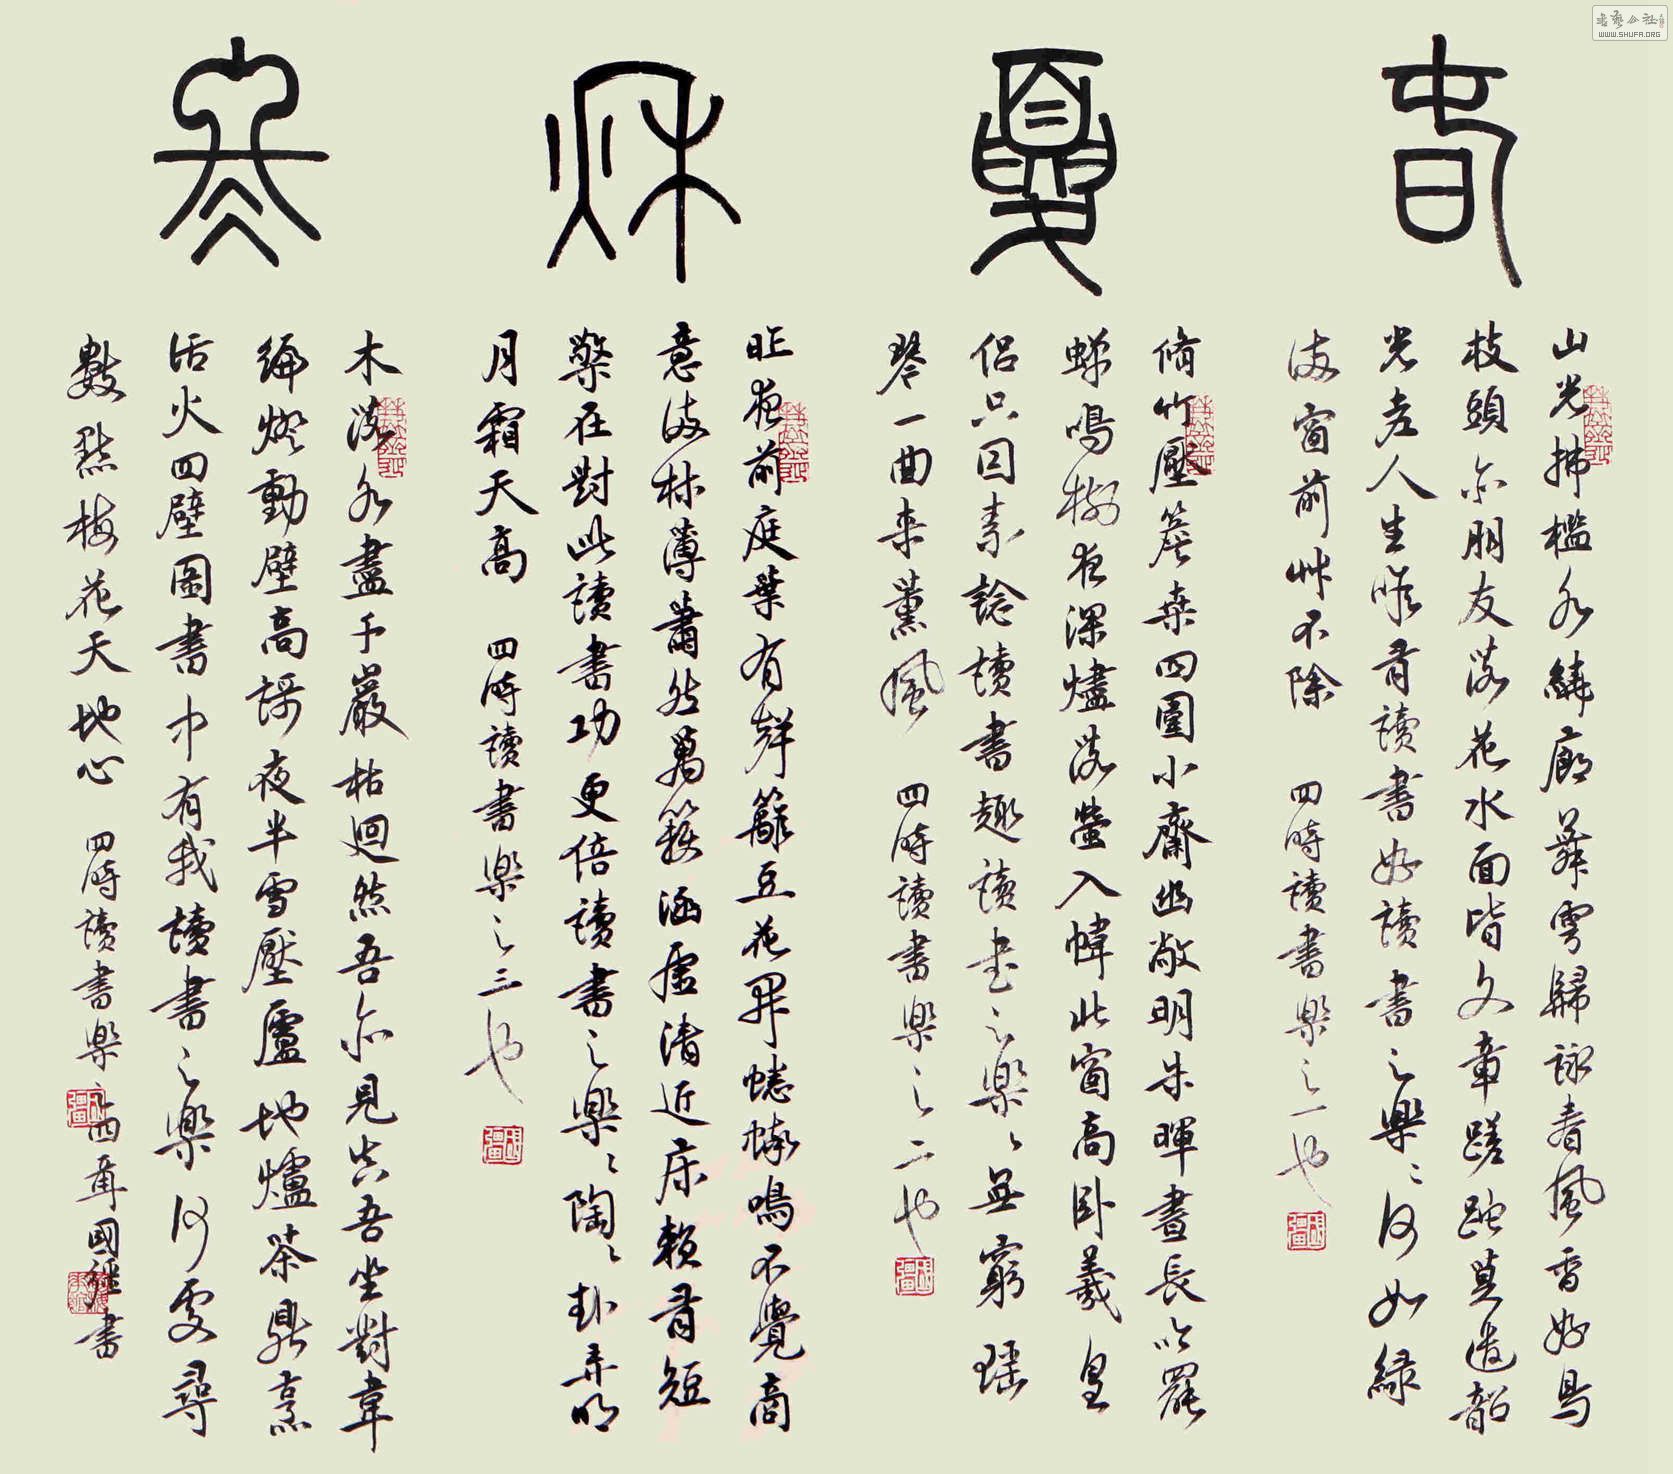 春
山光拂檻水繞廊舞雩歸詠春風香好鳥
枝頭亦朋友落花水面皆文章蹉跎莫遣韶
光老人生唯有讀書好讀書之樂〻何如綠
滿窗前艸不除 四時讀書樂之一也
夏
脩竹壓簷桑四圍小齋幽敞明朱暉晝長吟罷
蟬鳴樹夜深燼落螢入幃北窗高卧羲皇
侶只因素諗讀書趣讀書之樂〻無窮瑤
琴一曲来薰風 四時讀書樂之二也
秋
昨夜前庭葉有聲籬豆花開蟋蟀鳴不覺商
意滿林薄蕭然萬籟涵虛清近床賴有短
檠在對此讀書功更倍讀書之樂〻陶〻起弄明
月霜天高 四時讀書樂之三也
冬
木落水盡千巖枯迥然吾亦見真吾坐對韋
編燈動壁高謌夜半雪壓廬地爐茶鼎烹
活火四壁圖書中有我讀書之樂何處尋
數點梅花天地心 四時讀書樂之四 國疆書
WWW.SHUFA.ORG